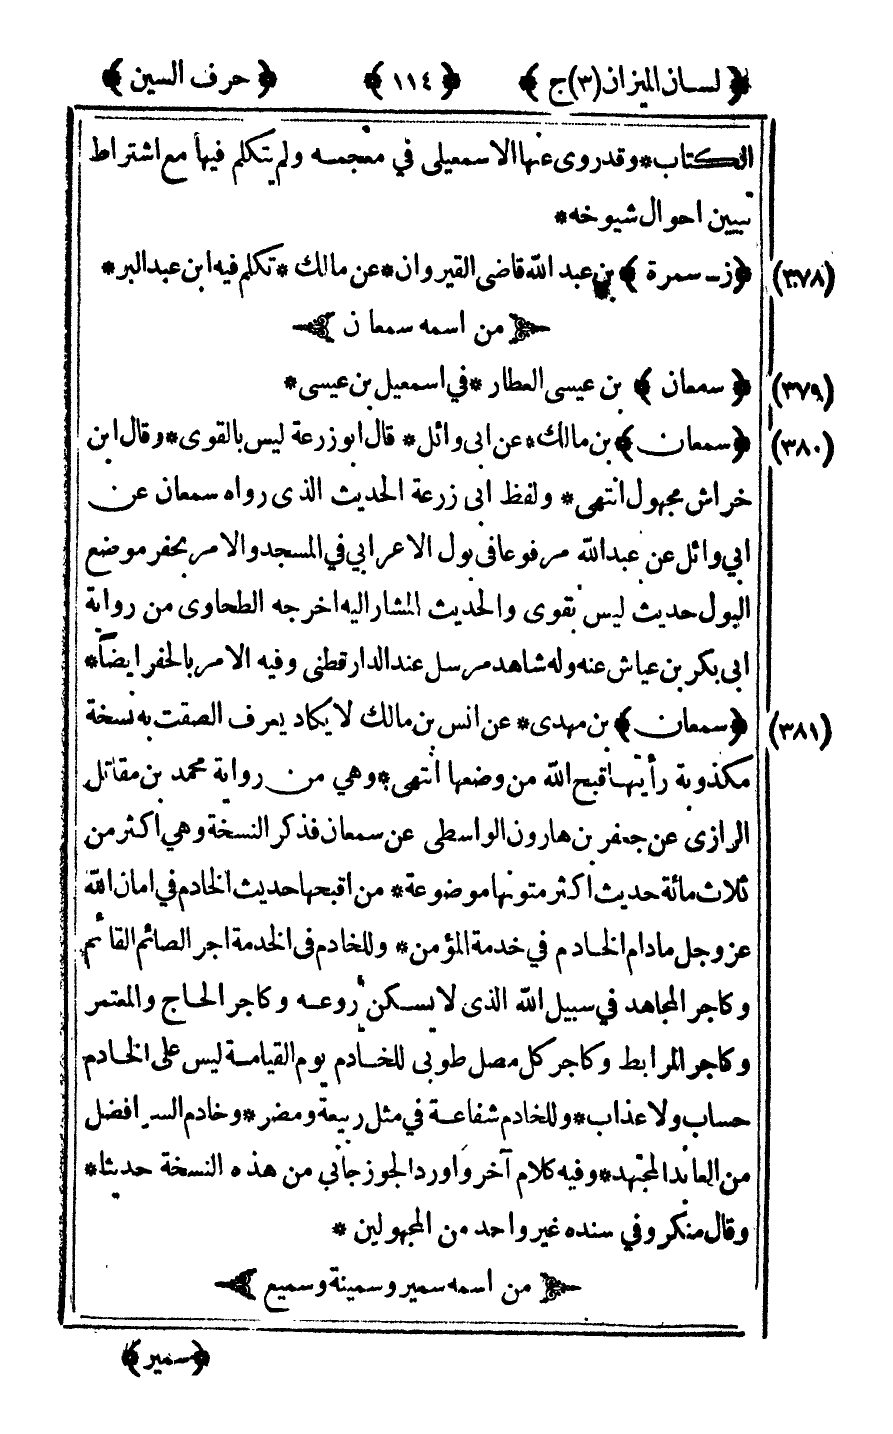 ﴿ لسان الميزان (٣) ج ﴾ ﴿ ١١٤ ﴾ ﴿ حرف السين ﴾
الكتاب * وقد روى عنها الاسمعيلى في معجمه ولم يتكلم فيها مع اشتراط
تبيين احوال شيوخه *
(٣٧٨) ﴿ ز - سمرة ﴾ بن عبد الله قاضى القيروان * عن مالك * تكلم فيه ابن عبد البر *
من اسمه سمعان
(٣٧٩) ﴿ سمعان ﴾ بن عيسى العطار * في اسمعيل بن عيسى *
(٣٨٠) ﴿ سمعان ﴾ بن مالك * عن ابى وائل * قال ابو زرعة ليس بالقوى * وقال ابن
خراش مجهول انتهى * ولفظ ابى زرعة الحديث الذى رواه سمعان عن
ابي وائل عن عبد الله مرفوعا فى بول الاعرابي في المسجد والامر بحفر موضع
البول حديث ليس بقوى والحديث المشار اليه اخرجه الطحاوى من رواية
ابى بكر بن عياش عنه وله شاهد مرسل عند الدارقطنى وفيه الامر بالحفر ايضاً *
(٣٨١) ﴿ سمعان ﴾ بن مهدى * عن انس بن مالك لا يكاد يعرف الصقت به نسخة
مكذوبة رأيتها قبح الله من وضعها انتهى * وهي من رواية محمد بن مقاتل
الرازى عن جعفر بن هارون الواسطى عن سمعان فذكر النسخة وهي اكثر من
ثلاث مائة حديث اكثر متونها موضوعة * من اقبحها حديث الخادم في امان الله
عز وجل مادام الخادم في خدمة المؤمن * وللخادم فى الخدمة اجر الصائم القائم
وكاجر المجاهد في سبيل الله الذى لا يسكن روعه وكاجر الحاج والمعتمر
وكاجر المرابط وكاجر كل مصل طوبى للخادم يوم القيامة ليس على الخادم
حساب ولا عذاب * وللخادم شفاعة في مثل ربيعة ومضر * وخادم السر افضل
من العابد المجتهد * وفيه كلام آخر واورد الجوزجاني من هذه النسخة حديثا *
وقال منكر وفي سنده غير واحد من المجهولين *
من اسمه سمير وسمينة وسميع
﴿ سمير ﴾